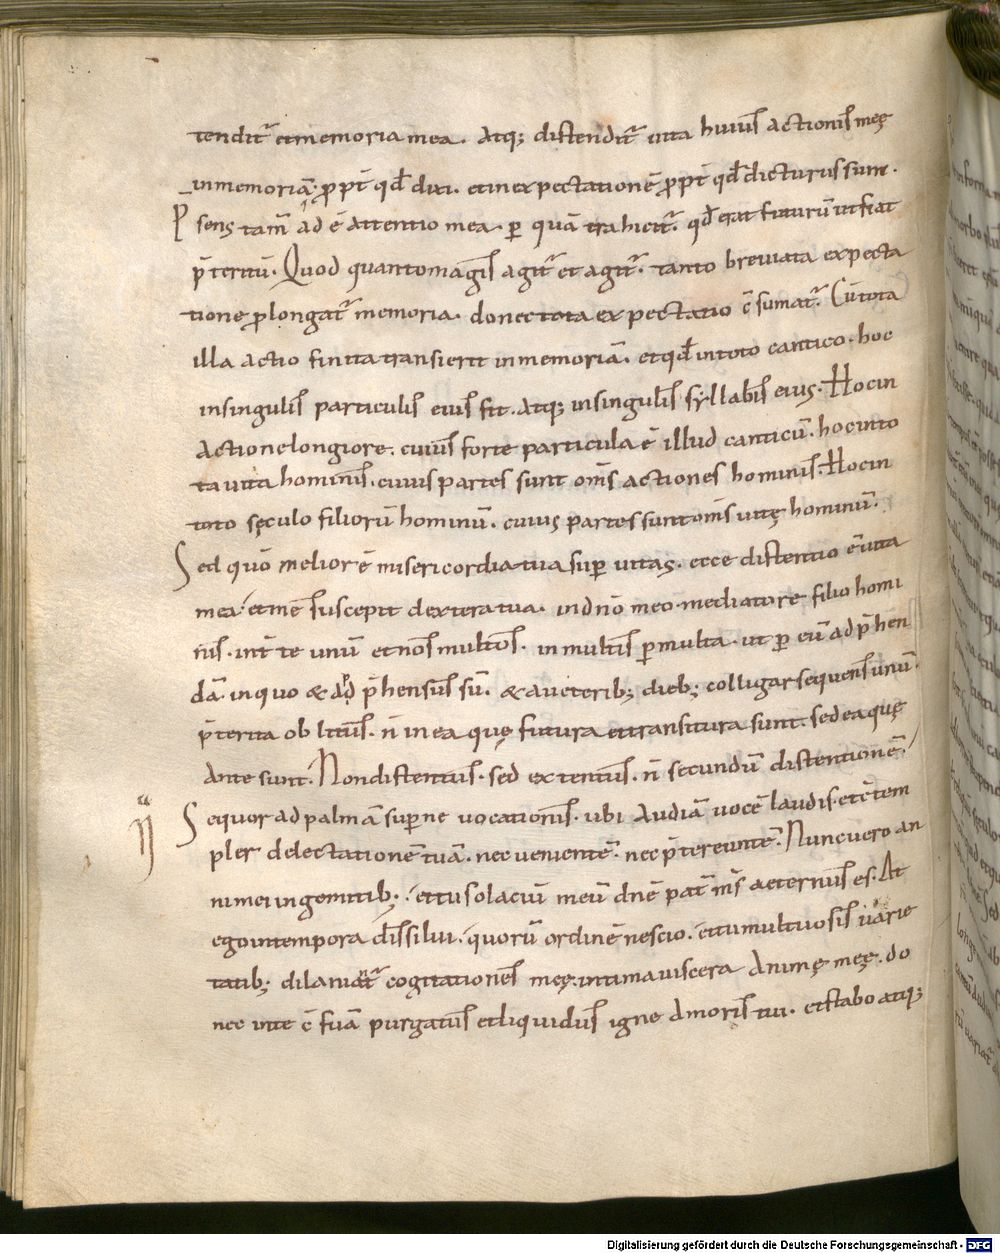 tendit᷑ etmemoria mea. Atq; distendit᷑ uita huius actionis meę
inmemoriā. ꝓpt̄ qđ dixi. etinexpectationē ꝓpt̄ qđ dicturus sum.
P̄sens tam̄ ad ē Attentio mea. ꝑ quā trahicit᷑. qđ erat futurū utfiat
p̄teritū. Quod quantomagis agit᷑ et agit᷑. tanto breuiata expecta
tione ꝓlongat᷑ memoria. donec tota expectatio c̄sumat᷑. Cū tota
illa actio finita transierit inmemoriā. etqđ intoto cantico. hoc
insingulis particulis eius fit. Atq; insingulis syllabis eius. Hocin
Actionelongiore. cuius forte particula ē illud canticū. hocinto
ta uita hominis. cuius partes sunt om̄s actiones hominis. Hocin
toto sęculo filiorū hominū. cuius partes sunt om̄s uitę hominū.
Sed quō melior ē misericordia tua suꝑ uitas. ecce distentio ē uita
mea. et me suscepit dextera tua. indn̄o meo. mediatore filio homi
nis. int̄ te unū et nos multos. in multis ꝑ multa. ut ꝑ eū ad p̄hen
dā. in quo & adp̄hensus sū. & aueterib; dieb; colligar sequens unū.
p̄terita oblitus. n̄ in ea quę futura et transitura sunt. sed ea quę
Ante sunt. Non distentus. sed extentus. n̄ secundū distentionē.
Sequor ad palmā suꝑne uocationis. ubi Audiā uocē laudis. et c̄tem
pler delectationē tuā. nec uenientē. nec p̄tereuntē. Nunc uero an
ni mei in gemitib;. et tu solaciū meū dn̄e pat᷑ m̄s aeternus es. At
ego intempora dissilui. quorū ordinē nescio. et tumultuosis uarie
tatib; dilaniat᷑ cogitationes meę. intima uiscera Animę meę. do
nec inte c̄fuā purgatus et liquidus igne Amoris tui. et stabo atq;
Digitalisierung gefördert durch die Deutsche Forschungsgemeinschaft - DFG